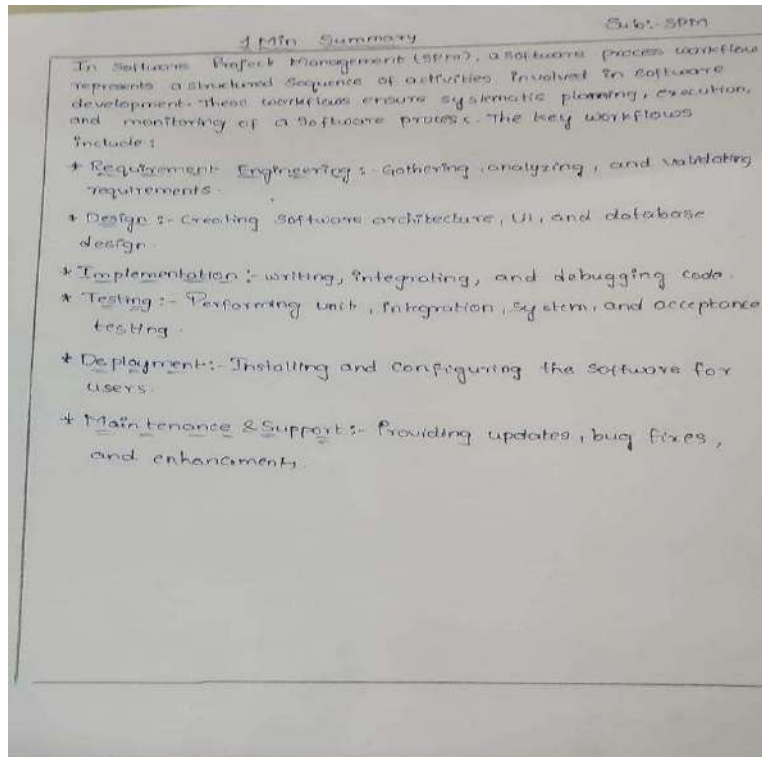 Sub:- SPM
1 Min Summary
In Software Project Management (SPM), a software process workflow
represents a structured sequence of activities involved in software
development. These workflows ensure systematic planning, execution,
and monitoring of a software process. The key workflows
include:
* Requirement Engineering:- Gathering, analyzing, and validating
requirements.
* Design:- Creating software architecture, UI, and database
design.
* Implementation:- writing, integrating, and debugging code.
* Testing:- Performing unit, integration, system, and acceptance
testing.
* Deployment:- Installing and configuring the software for
users.
* Maintenance & Support:- Providing updates, bug fixes,
and enhancements.